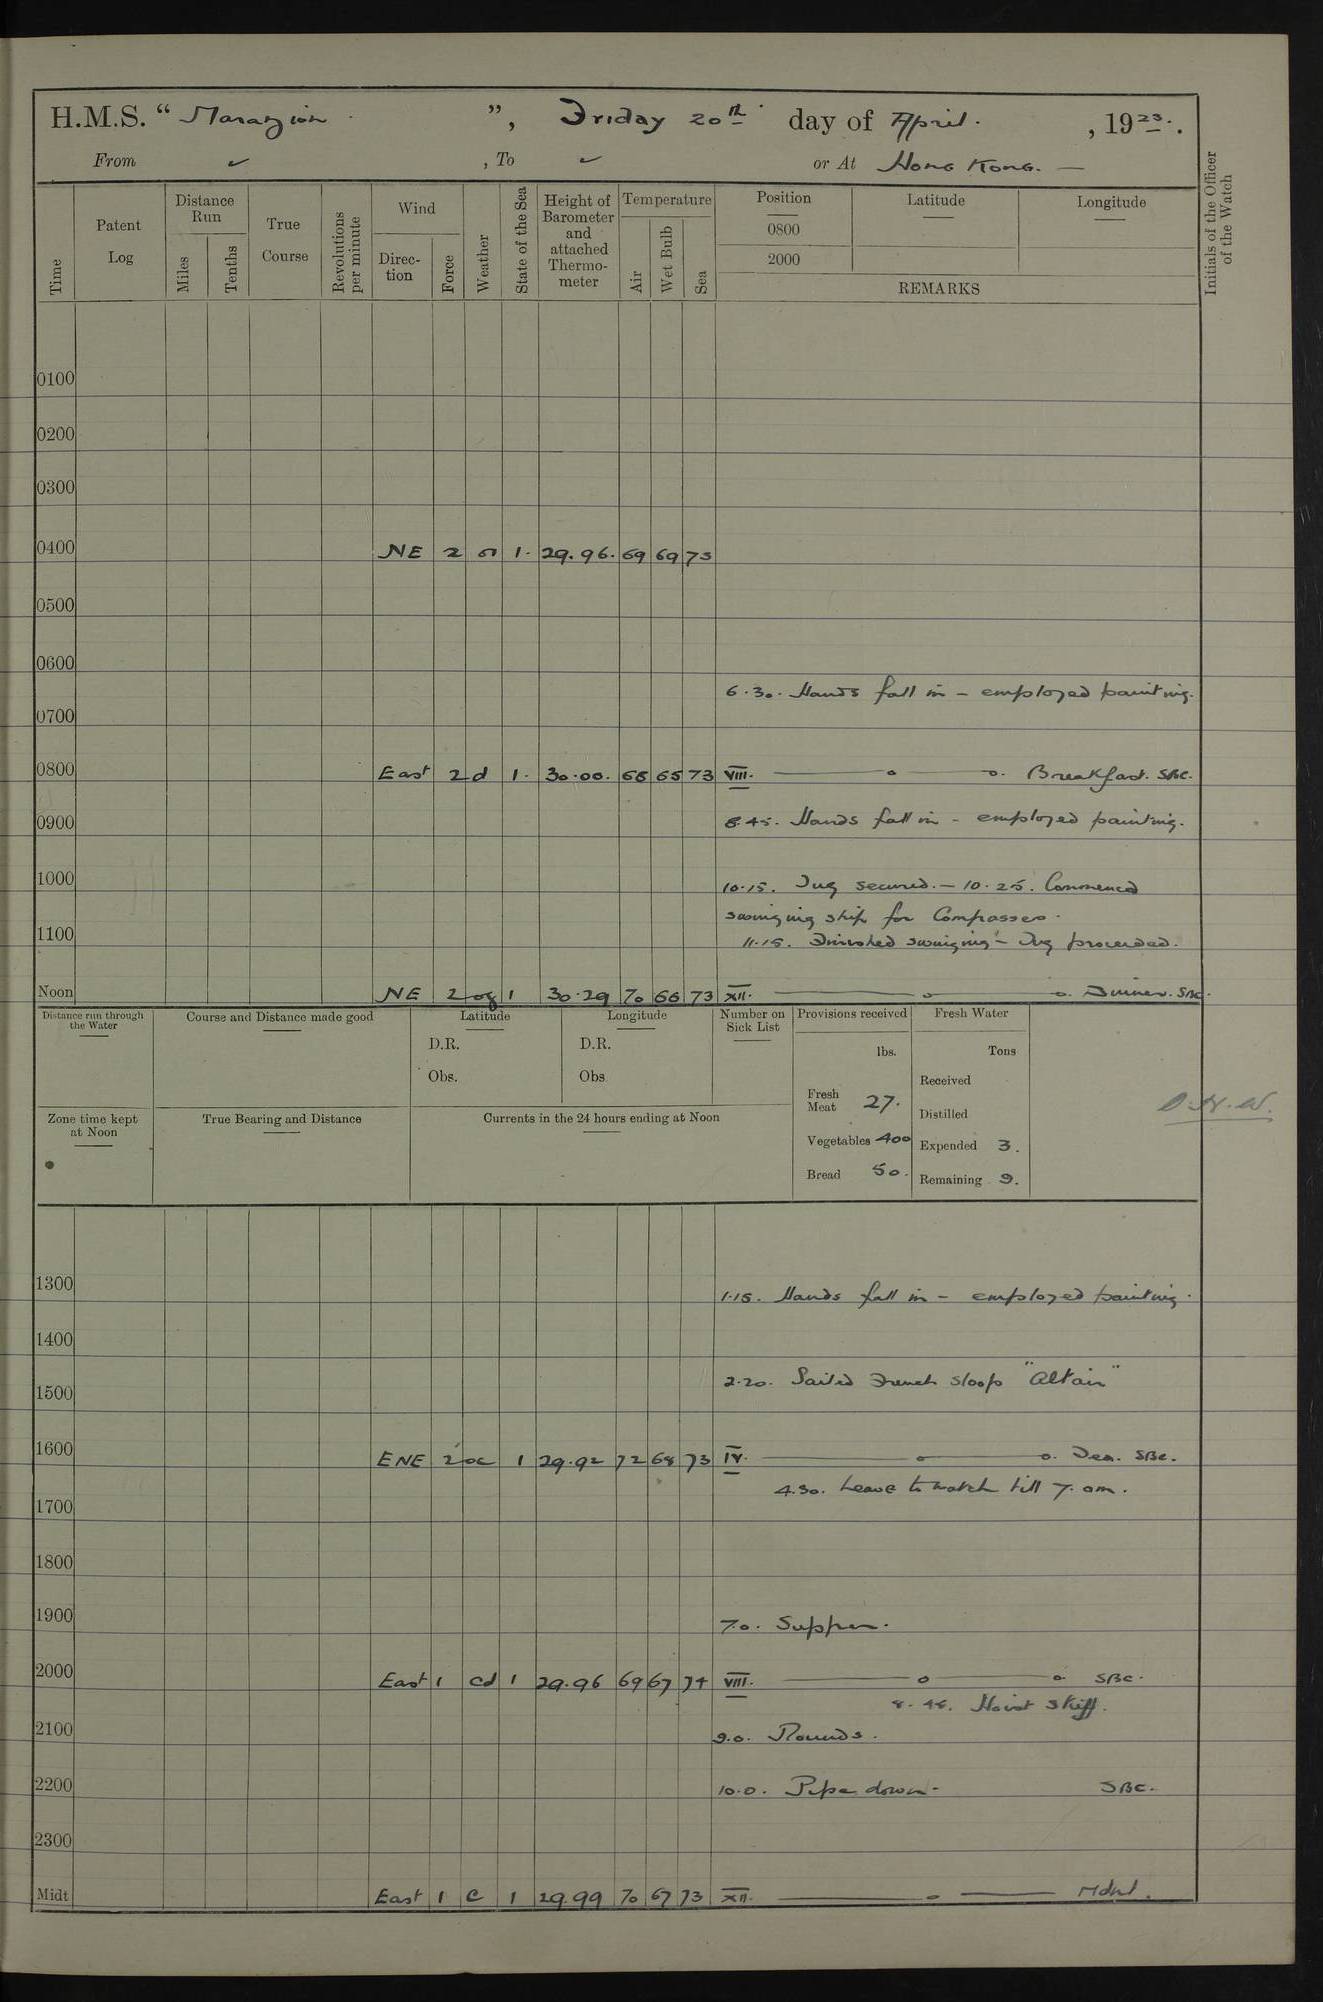 H.M.S. “ Marazion ”, Friday 20th day of April. , 1923.
From ✓ , To ✓ or At Hong Kong. —
Time Patent Log Distance Run Miles Tenths True Course Revolutions per minute Wind Direc-tion Force Weather State of the Sea Height of Barometer and attached Thermo-meter Temperature Air Wet Bulb Sea Position 0800 2000 Latitude Longitude Initials of the Officer of the Watch
REMARKS
0100
0200
0300
0400 NE 2 1. 29.96. 69 69 73
0500
0600
6.30. Hands fall in – employed painting.
0700
0800 East 2 d 1. 30.00. 65 73 VIII. Breakfast. SBC.
0900 8.45. Hands fall in – employed painting.
1000 10.15. Tug secured. – 10.25. Commenced
swinging ship for Compasses.
1100 11.15. Finished swinging – Tug proceeded.
Noon NE 2 og 1 30.29 70 66 73 XII. Dinner. SBC.
Distance run through the Water
Course and Distance made good
Latitude
D.R.
Obs.
Longitude
D.R.
Obs
Number on Sick List
Provisions received
lbs.
Fresh Meat 27.
Vegetables 400
Bread 50.
Fresh Water
Tons
Received
Distilled
Expended 3.
Remaining 9.
Zone time kept at Noon
True Bearing and Distance
Currents in the 24 hours ending at Noon
1300 1.15. Hands fall in – employed painting.
1400
1500 2.20. Sailed French sloop "Altair"
1600 ENE 2 oc 1 29.92 72 68 73 IV. Tea. SBC.
4.30. Leave to watch till 7. am.
1700
1800
1900 7.0. Supper.
2000 East 1 cd 1 29.96 69 67 74 VIII. SBC.
8.45. Hoist skiff.
2100 9.0. Rounds.
2200 10.0. Pipe down. SBC.
2300
Midt East 1 c 1 29.99 70 67 73 XII.